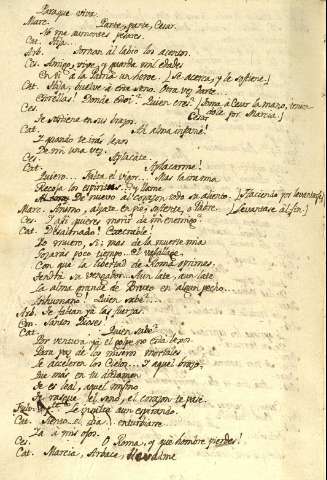 Para que viva.
Marc. Parte, parte, Cesar.
No me aumentes pesares.
Cat. Hija.
Arb. Tornan al labio los acentos.
Ces. Amigo, vive, y guarda mil edades
En ti a la Patria un heroe. (Se acerca, y le sostiene)
Cat. Hija, vuelve á este seno. Otra vez parte...
Estrellas! Donde estoi? Quien eres? (Toma á Cesar la mano, teniendole por Marcia)
Ces. Cesar
Te sostiene en sus brazos.
Cat. El alma infame!
Y quando te irás lejos
De mi una vez.
Ces. Aplacate.
Cat. Aplacarme!
Quiero... Falta el vigor... Mas la rauma
Recoja los espiritus, y llame
De nuevo al corazon todo su aliento. (Haciendo por levantarse)
Marc. Señor, alzate en pie, sostente, o Padre. (Levantase al fin)
Ces. Y asi quieres morir mi enemigo?
Cat. Desalmado! Execrable!
Yo muero, si; mas de la muerte mia
Gozarás poco tiempo. El
Con que la libertad de Roma oprimes,
Tendrá su vengador. Aun late, aun late
La alma grande de Bruto en algun pecho...
Inhumano! Quien sabe?...
Arb. Se faltan ya las fuerzas.
Em. Santos Dioses
Cat. Quien sabe?
Por ventura ya el golpe no está lejos.
Para paz de los miseros mortales
Le aceleren los Cielos... Y aquel brazo,
Que más en tu
Se es leal, aquel mismo
Te rasgue el seno, el corazon te pase.
Fulv. Le insulta aun espirando.
Cat. Siento el dia enturbiarse
Ya á mis ojos.
Ces. O Roma, y que hombre pierdes!
Cat. Marcia, Arbace,